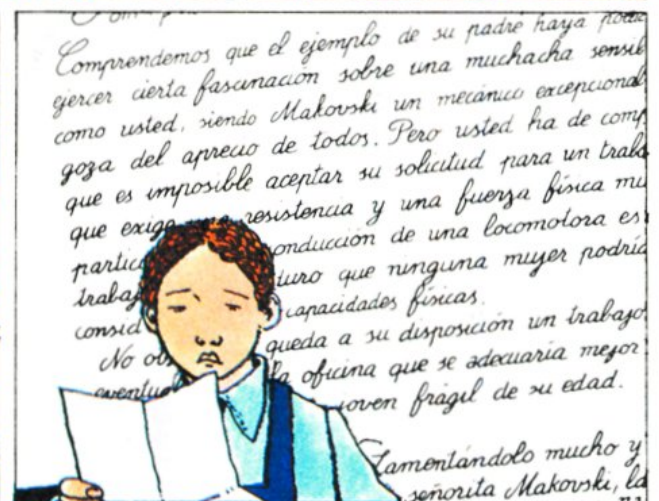 Comprendemos que el ejemplo de su padre haya
ejercer cierta fascinación sobre una muchacha sensib
como usted, siendo Makovski un mecánico excepcional
goza del aprecio de todos. Pero usted ha de comp
que es imposible aceptar su solicitud para un traba
que exige resistencia y una fuerza física mu
partic onducción de una locomotora es
trabaj duro que ninguna mujer podría
consid capacidades físicas.
No ob queda a su disposición un trabajo
eventu la oficina que se adecuaría mejor
joven frágil de su edad.
Lamentándolo mucho y
señorita Makovski, la